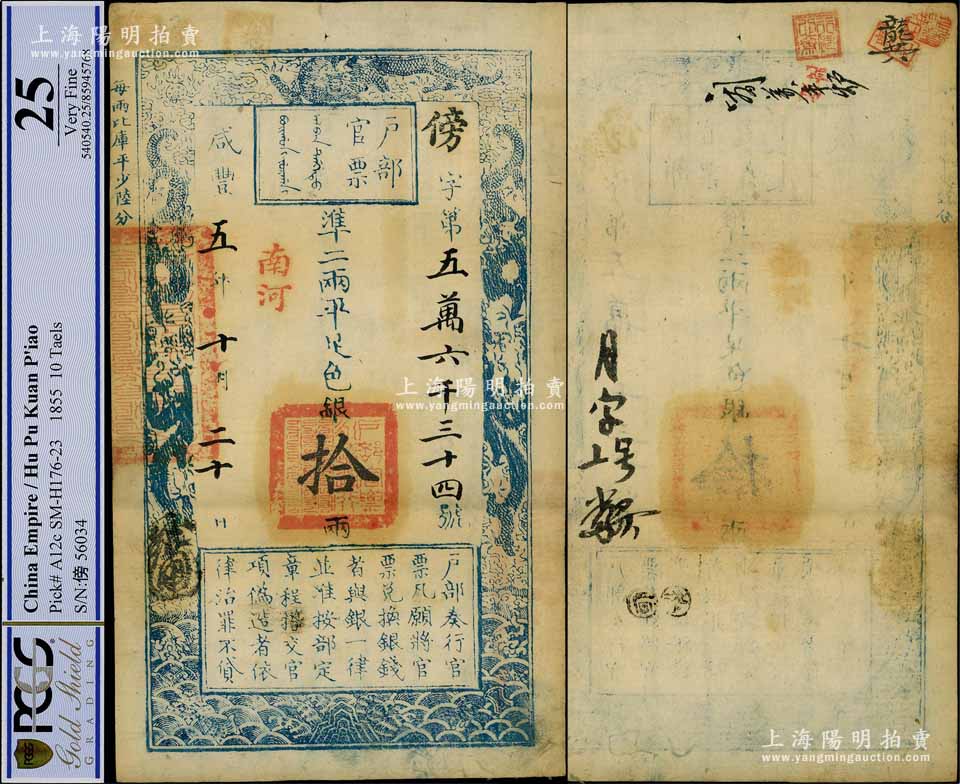 PCGS
Gold Shield
GRADING
China Empire / Hu Pu Kuan P'iao
Pick# A12c SM-H176-23 1855 10 Taels
S/N:傍 56034
25
Very Fine
540540.25/85945768
上海陽明拍賣
www.yangmingauction.com
戶部
官票
傍字第五萬六千三十四號
準二兩平足色銀拾兩
南河
咸豐五年十月二十日
每兩比庫平少陸分
戶部奏行官
票凡願將官
票兌換銀錢
者與銀一律
並准按部定
章程搭交官
項偽造者依
律治罪不貸
上海陽明拍賣
www.yangmingauction.com
上海陽明拍賣
www.yangmingauction.com
月字上号
上海陽明拍賣
www.yangmingauction.com